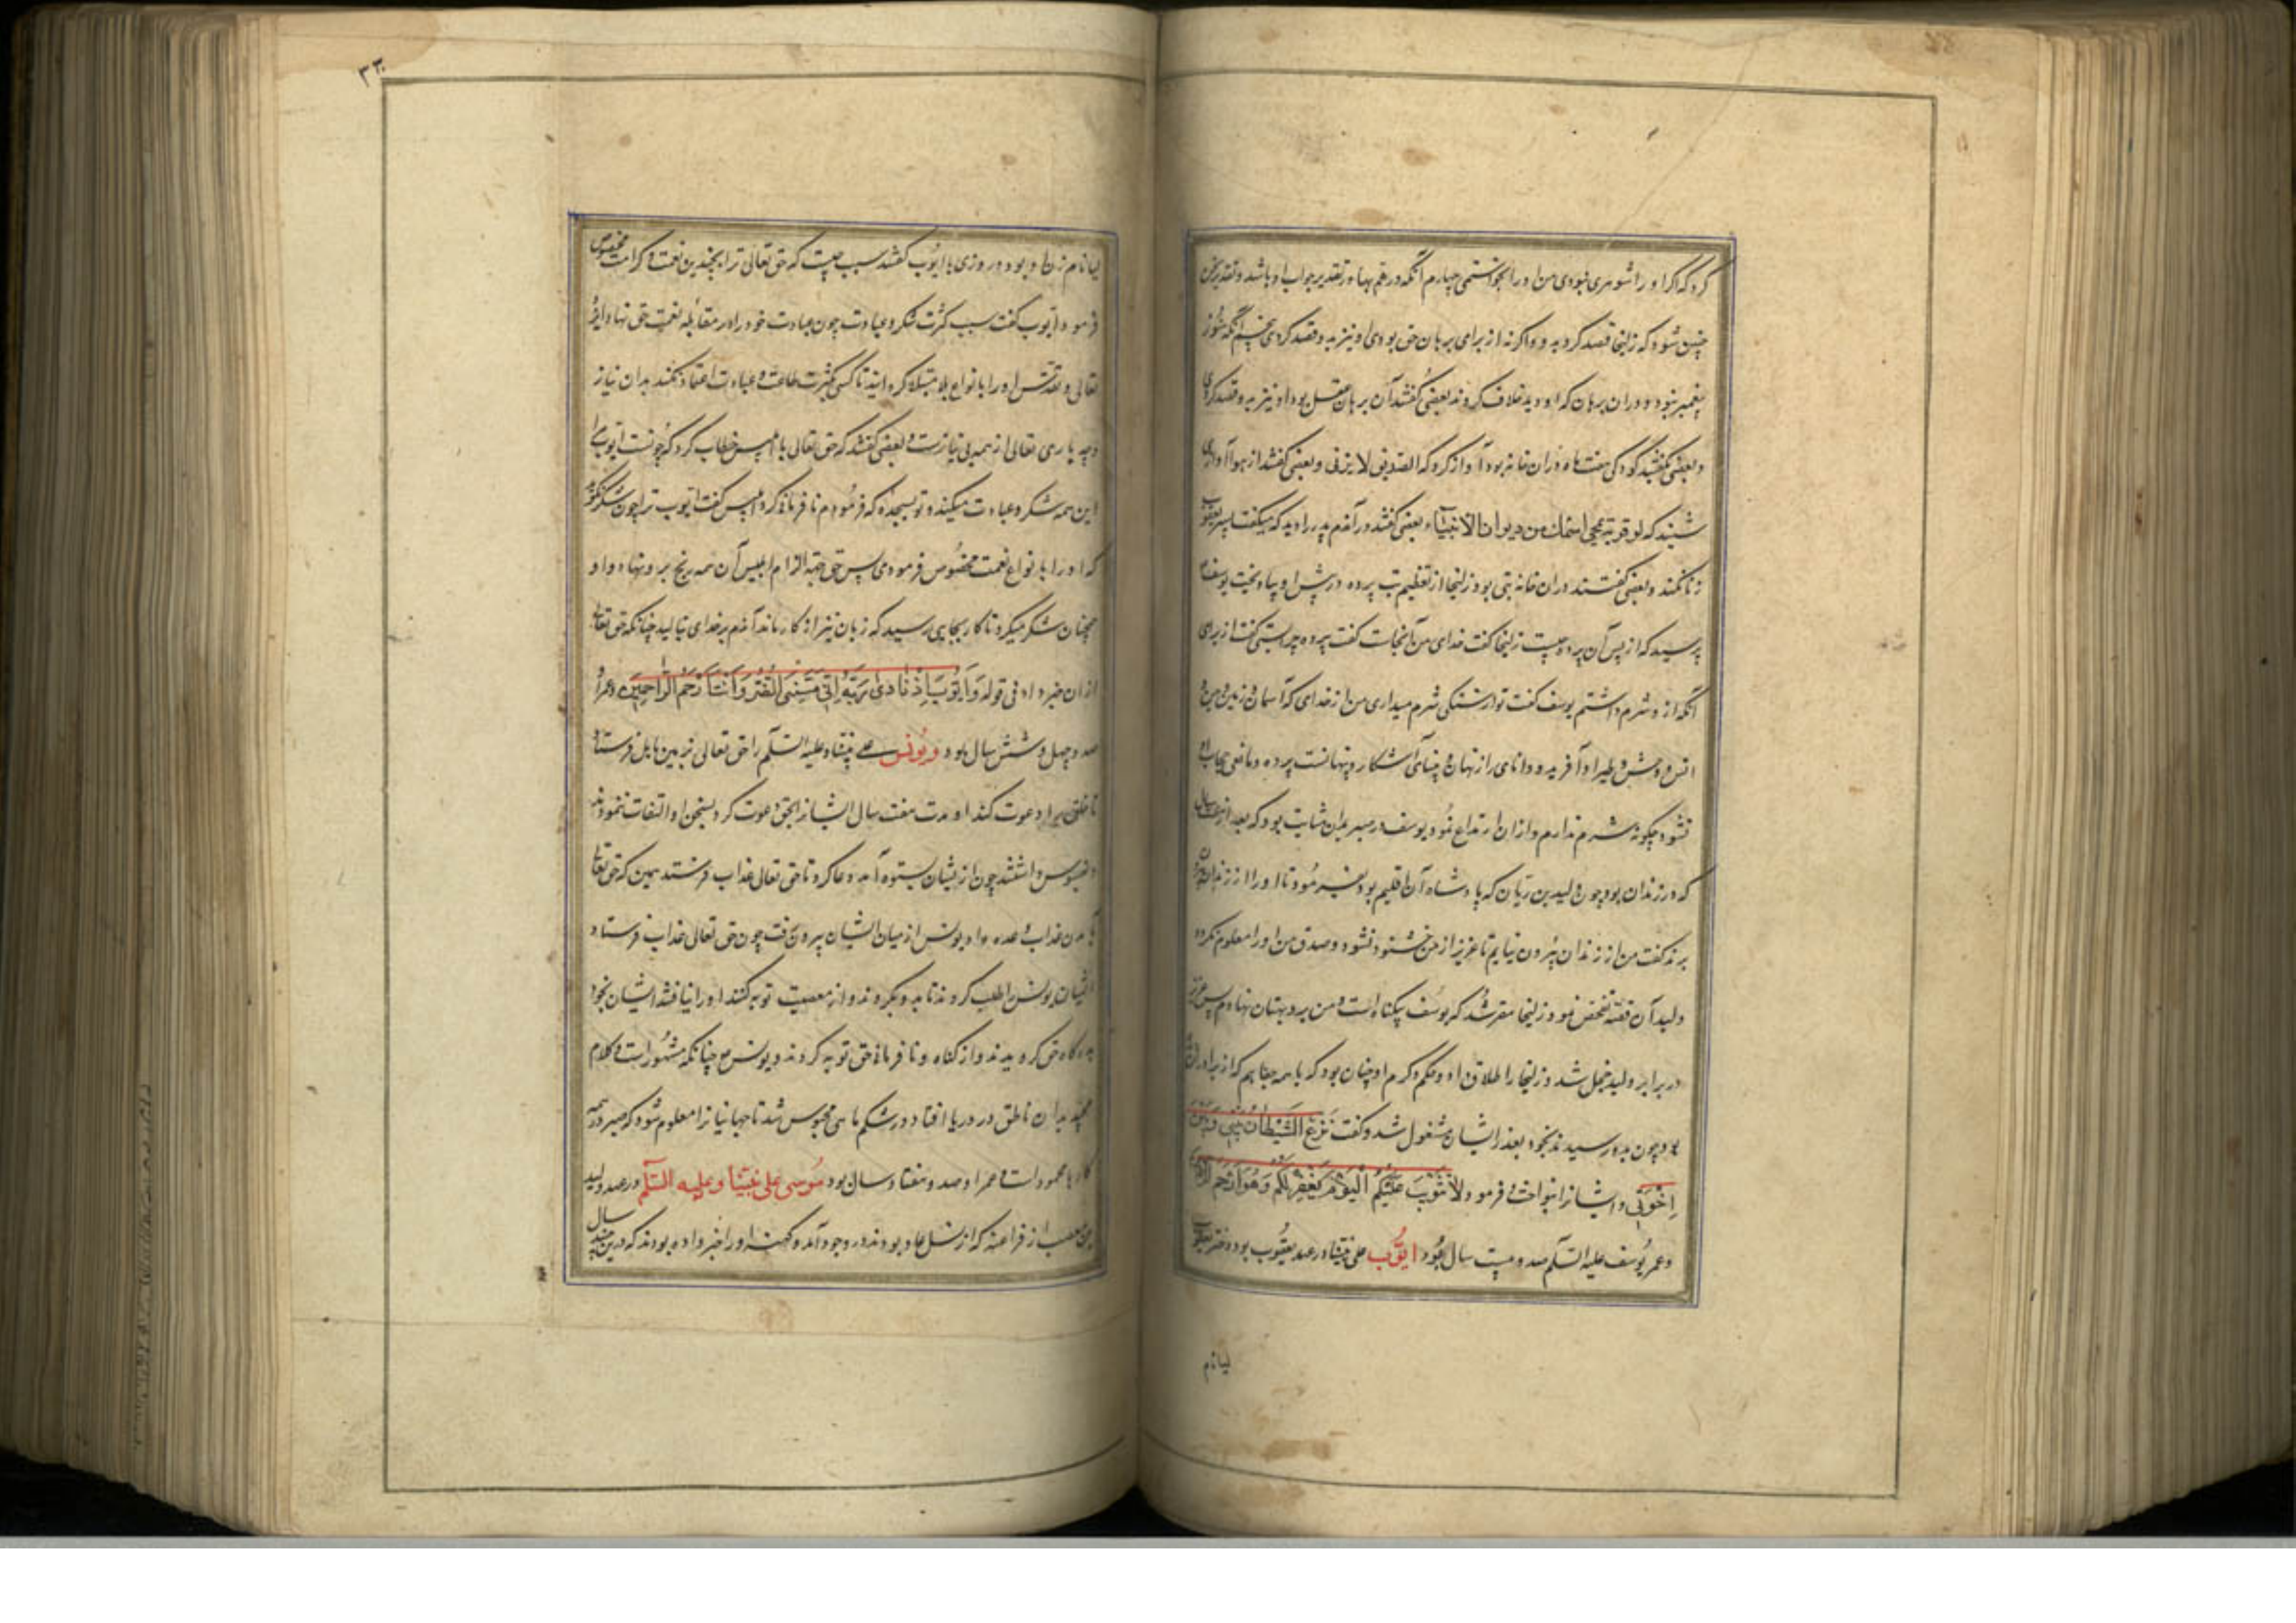 کرد که اگر او را شوهری نبودی من او را بخواستمی چهارم آنکه در هم بها در تقدیر جواب او باشد و تقدیر سخن
چنین شود که زلیخا قصد کرد بدو و اگر نه از برای برهان حق بودی او نیز بدو قصد کردی پنجم آنکه هنوز
پیغمبر نبود و در ان برهان که او دید خلاف کردند بعضی گفتند آن برهان عقل بود او نیز بدو قصد کردی
و بعضی گفتند کودکی هفت ماهه در ان خانه بود آواز کرد که الصدیق لا یزنی و بعضی گفتند از هوا آوازی
شنید که لو قربته محی اسمک من دیوان الانبیاء بعضی گفتند در آندم پدر را دید که میگفت پسر یعقوب
زنا نکند و بعضی گفتند در ان خانه بتی بود زلیخا از تعظیم بت پرده در پیش او بیاویخت یوسف
پرسید که از پس آن پرده چیست زلیخا گفت خدای من آنجاست گفت پرده چرا بستی گفت از برای
آنکه از و شرم داشتم یوسف گفت تو از سنگی شرم میداری من از خدای که آسمان و زمین و جن و
انس و وحش و طیر او آفریده و دانای راز نهان و بینای آشکار و پنهانست پرده و مانعی حجاب او
نشود چگونه شرم ندارم و از ان ارتداع نمود یوسف در صبر بدان مثابت بود که بعد از هفت سال
که در زندان بود چون ولید بن ریان که پادشاه آن اقلیم بود بفرمود تا او را از زندان بیرون
برند گفت من از زندان بیرون نیایم تا عزیز از من خشنود نشود و صدق من او را معلوم نکرده
ولید آن قصه تفحص نمود زلیخا مقر شد که یوسف بیگناه است و من برو بهتان نهادم پس عزیز
در برابر ولید خجل شد و زلیخا را طلاق داد و حکم و کرم او چنان بود که با همه جفاهم که از برادران
بدو چون بدو رسیدند بخود بعذر ایشان مشغول شد و گفت نزغ الشیطان بینی و بین
اخوتی و ایشانرا بنواخت و فرمود لا تثریب علیکم الیوم یغفر لکم و هو ارحم الراحمین
و عمر یوسف علیه السلم صد و بیست سال بود ایوب علی نبینا در عهد یعقوب بود دختر یعقوب
لیانام
۳۳۰
لیا نام زن او بود و روزی با ایوب گفتند سبب چیست که حق تعالی ترا بچندین نعمت و کرامت مخصوص
فرمود ایوب گفت سبب کثرت شکر و عبادت چون عبادت خود را در مقابله نعمت حق نهاد ایزد
تعالی و تقدس او را بانواع بلا مبتلا گردانید تا کسی بکثرت طاعت و عبادت اعتماد نکند بدان نیاز
و چه باری تعالی از همه بی نیازست و بعضی گفتند که حق تعالی با ابلیس خطاب کرد که چونست ایوب با
این همه شکر و عبادت میکند و تو بسجده که فرمودم نافرمانی کرد ابلیس گفت ایوب ترا چون شکر نگوید
که او را بانواع نعمت مخصوص فرمودی پس حق جهة الزام ابلیس آن همه رنج برو نهاد و او
همچنان شکر میکرد تا کار بجایی رسید که زبان نیز از کار بماند آندم بر خدای بنالید چنانکه حق تعالی
از ان خبر داد فی قوله و ایوب اذ نادی ربه انی مسنی الضر و انت ارحم الراحمین و عمر او
صد و چهل و شش سال بود و یونس علی نبینا و علیه السلم را حق تعالی بزمین بابل فرستاد
تا خلق را دعوت کند او مدت هفت سال ایشانرا بحق دعوت کرد بسخن او التفات ننمودند
و افسوس داشتند چون از یشان بستوه آمد دعا کرد تا حق تعالی عذاب فرستد همین که حق تعالی
بآمدن عذاب وعده داد یونس از میان ایشان بیرون رفت چون حق تعالی عذاب فرستاد
ایشان یونس را طلب کردند تا بدو بگروند و از معصیت توبه کنند او را نیافتند ایشان بخود
بدرگاه حق گرویدند و از گناه و نافرمانی حق توبه کردند و یونس ع چنانکه مشهور است و کلام
مجید بدان ناطق در دریا افتاد و در شکم ماهی محبوس شد تا جهانیانرا معلوم شود که صبر در همه
کارها محمود است و عمر او صد و هفتاد سال بود موسی علی نبینا و علیه السلم در عهد ولید
بن مصعب از فراعنه که از نسل عاد بودند در وجود آمد و کهنه او را خبر داده بودند که درین چند سال